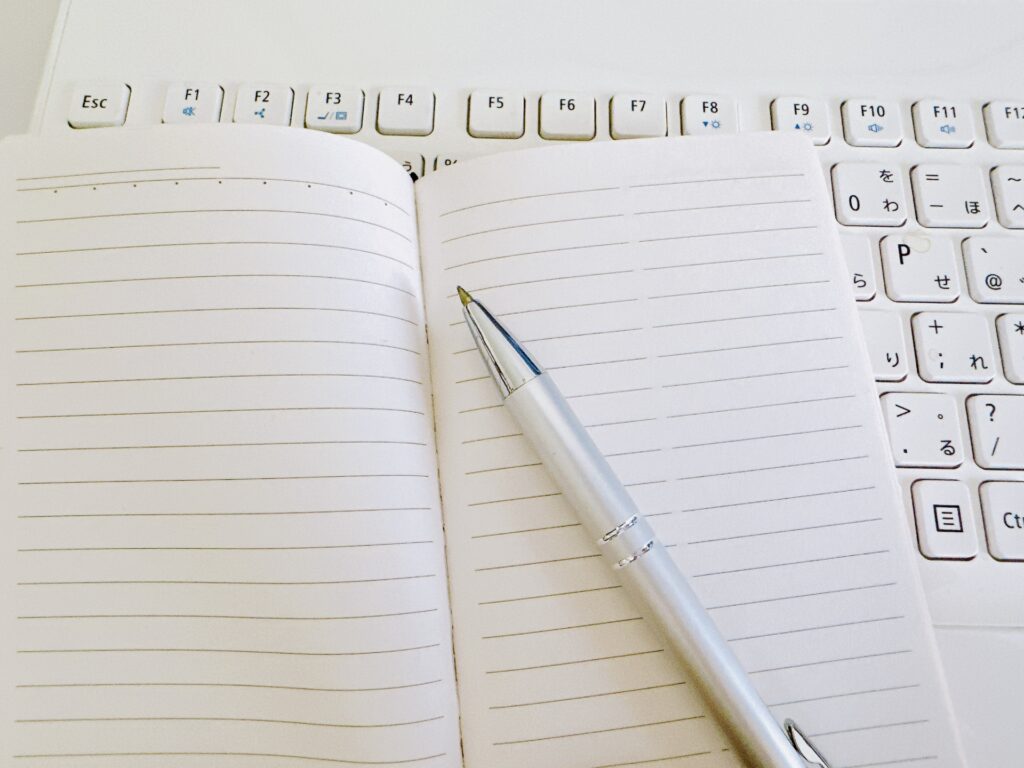 Esc F1 F2 F3 F4 F5 F6 F7 F8 F9 F10 F11 F12
ぅ %
を = ~
0 わ - ほ へ
P 、
ら せ @
+ *
り ; れ
> 。 ?
. る /
Ctr